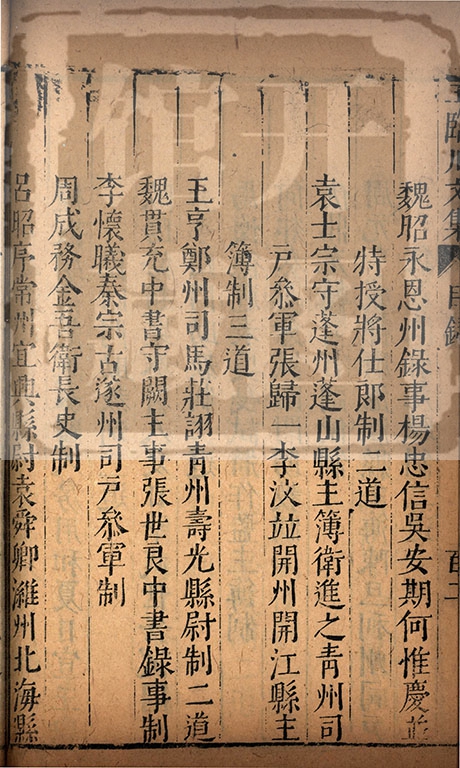 王臨川文集 目錄
魏昭永恩州錄事楊忠信吳安期何惟慶並
特授將仕郎制二道
袁士宗守蓬州蓬山縣主簿衛進之青州司
戶叅軍張歸一李汶並開州開江縣主
簿制三道
王亨鄭州司馬莊詡青州壽光縣尉制二道
魏貫充中書守闕主事張世良中書錄事制
李懷曦秦宗古遂州司戶叅軍制
周成務金吾衛長史制
呂昭亭常州宜興縣尉袁舜卿濰州北海縣